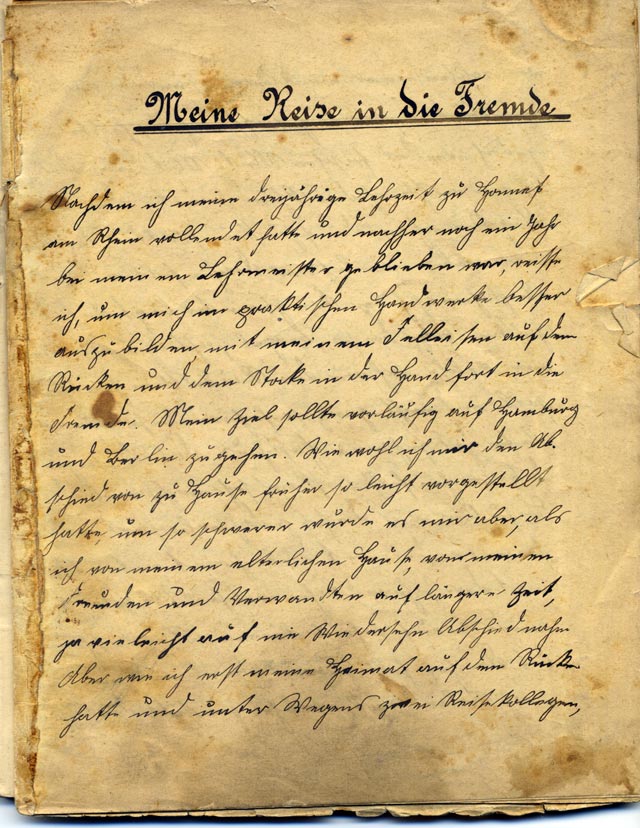 Meine Reise in die Fremde
Nachdem ich meine dreijährige Lehrzeit zu Honnef
am Rhein vollendet hatte und nachher noch ein Jahr
bei meinem Lehrmeister geblieben war, reiste
ich, um mich im praktischen Handwerke besser
auszubilden, mit meinem Felleisen auf dem
Rücken und dem Stocke in der Hand fort in die
Fremde. Mein Ziel sollte vorläufig auf Hamburg
und Berlin zugehen. Wie wohl ich mir den Ab-
schied von zu Hause früher so leicht vorgestellt
hatte um so schwerer wurde es mir aber, als
ich von meinem elterlichen Hause, von meinen
Freunden und Verwandten auf längere Zeit,
ja vieleicht auf nie Wiedersehn Abschied nahm
Aber wie ich erst meine Heimat auf dem Rücken
hatte und unter Wegens zwei Reisekollegen,